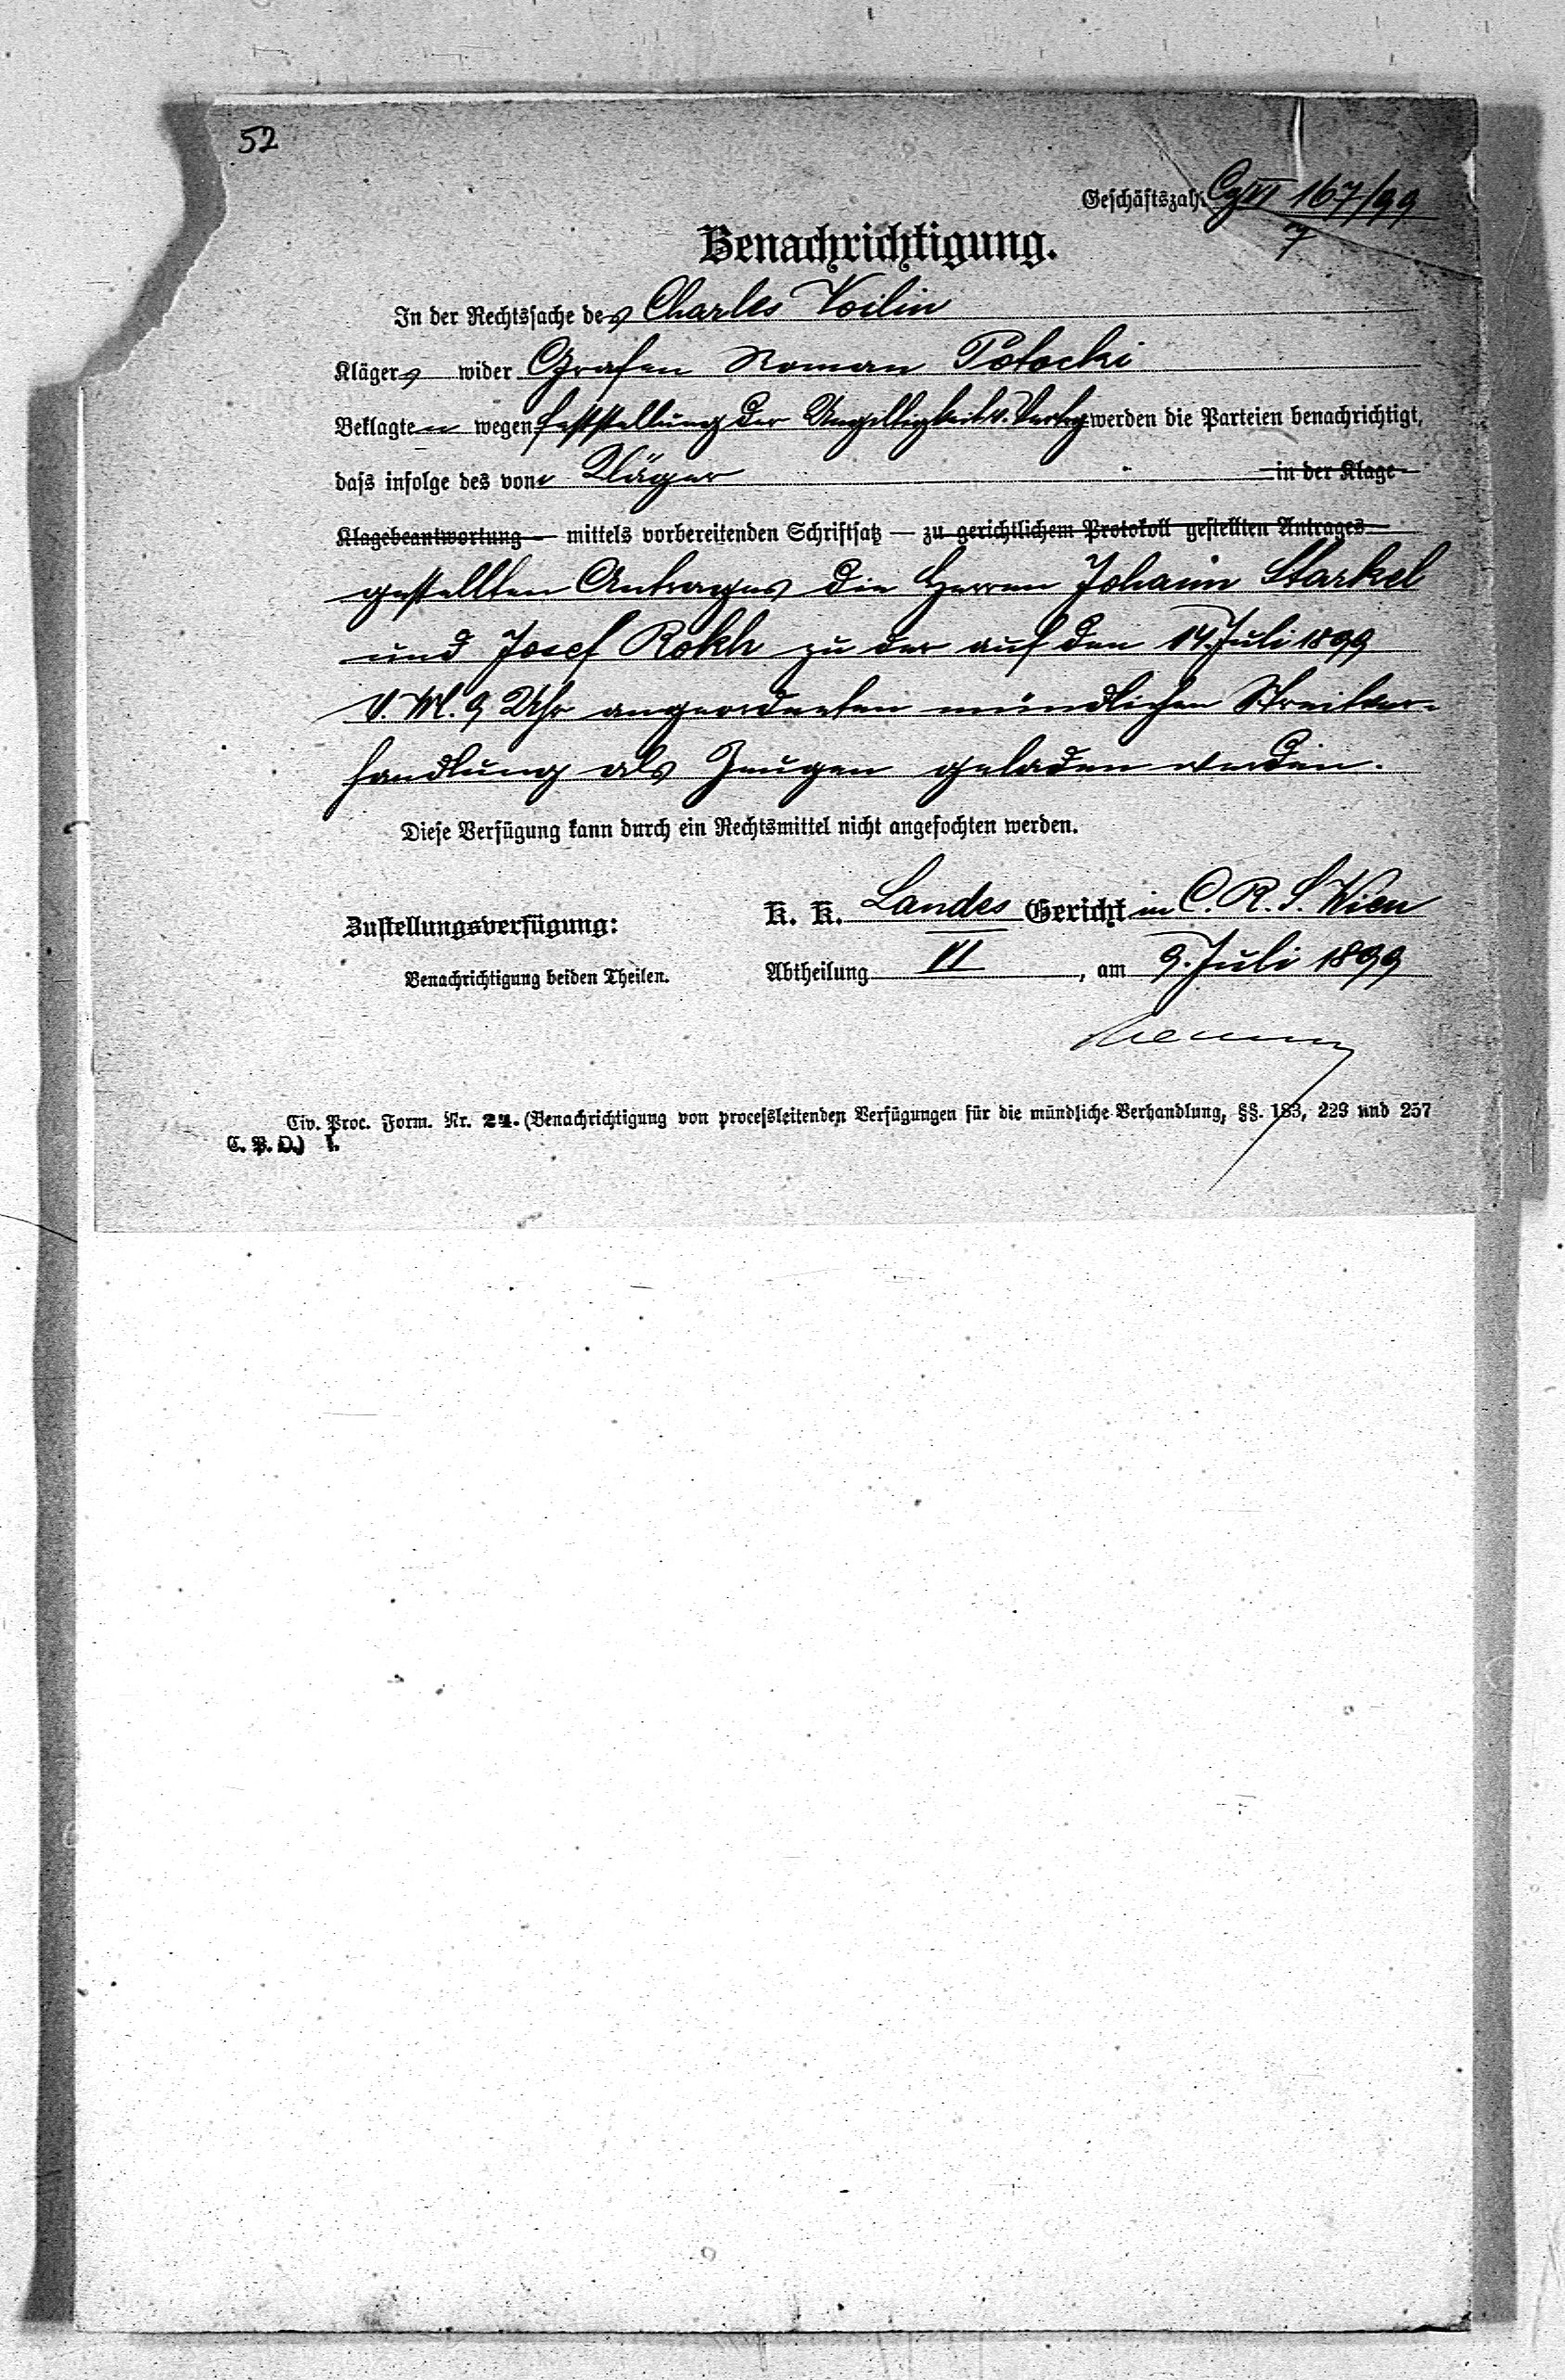 52
Geschäftszahl Cg VI 167/99
7
Benachrichtigung.
In der Rechtssache des Charles Voilin
Klägers wider Grafen Roman Potocki
Beklagten wegen Feststellung der Ungiltigkeit werden die Parteien benachrichtigt,
dass infolge des vom Kläger in der Klage
Klagebeantwortung — mittels vorbereitenden Schriftsatz — zu gerichtlichem Protokoll gestellten Antrages
gestellten Antrages die Herren Johann Starkel
und Josef Rokh zu der auf den 14. Juli 1899
V. M. 9 Uhr angeordneten mündlichen Streitver-
handlung als Zeugen geladen werden.
Diese Verfügung kann durch ein Rechtsmittel nicht angefochten werden.
K. K. Landes Gericht in C. R. S. Wien
Zustellungsverfügung:
Abtheilung VI, am 9. Juli 1899
Benachrichtigung beiden Theilen.
Civ. Proc. Form. Nr. 24. (Benachrichtigung von processleitenden Verfügungen für die mündliche Verhandlung, §§. 183, 229 und 257
C. P. O.) I.